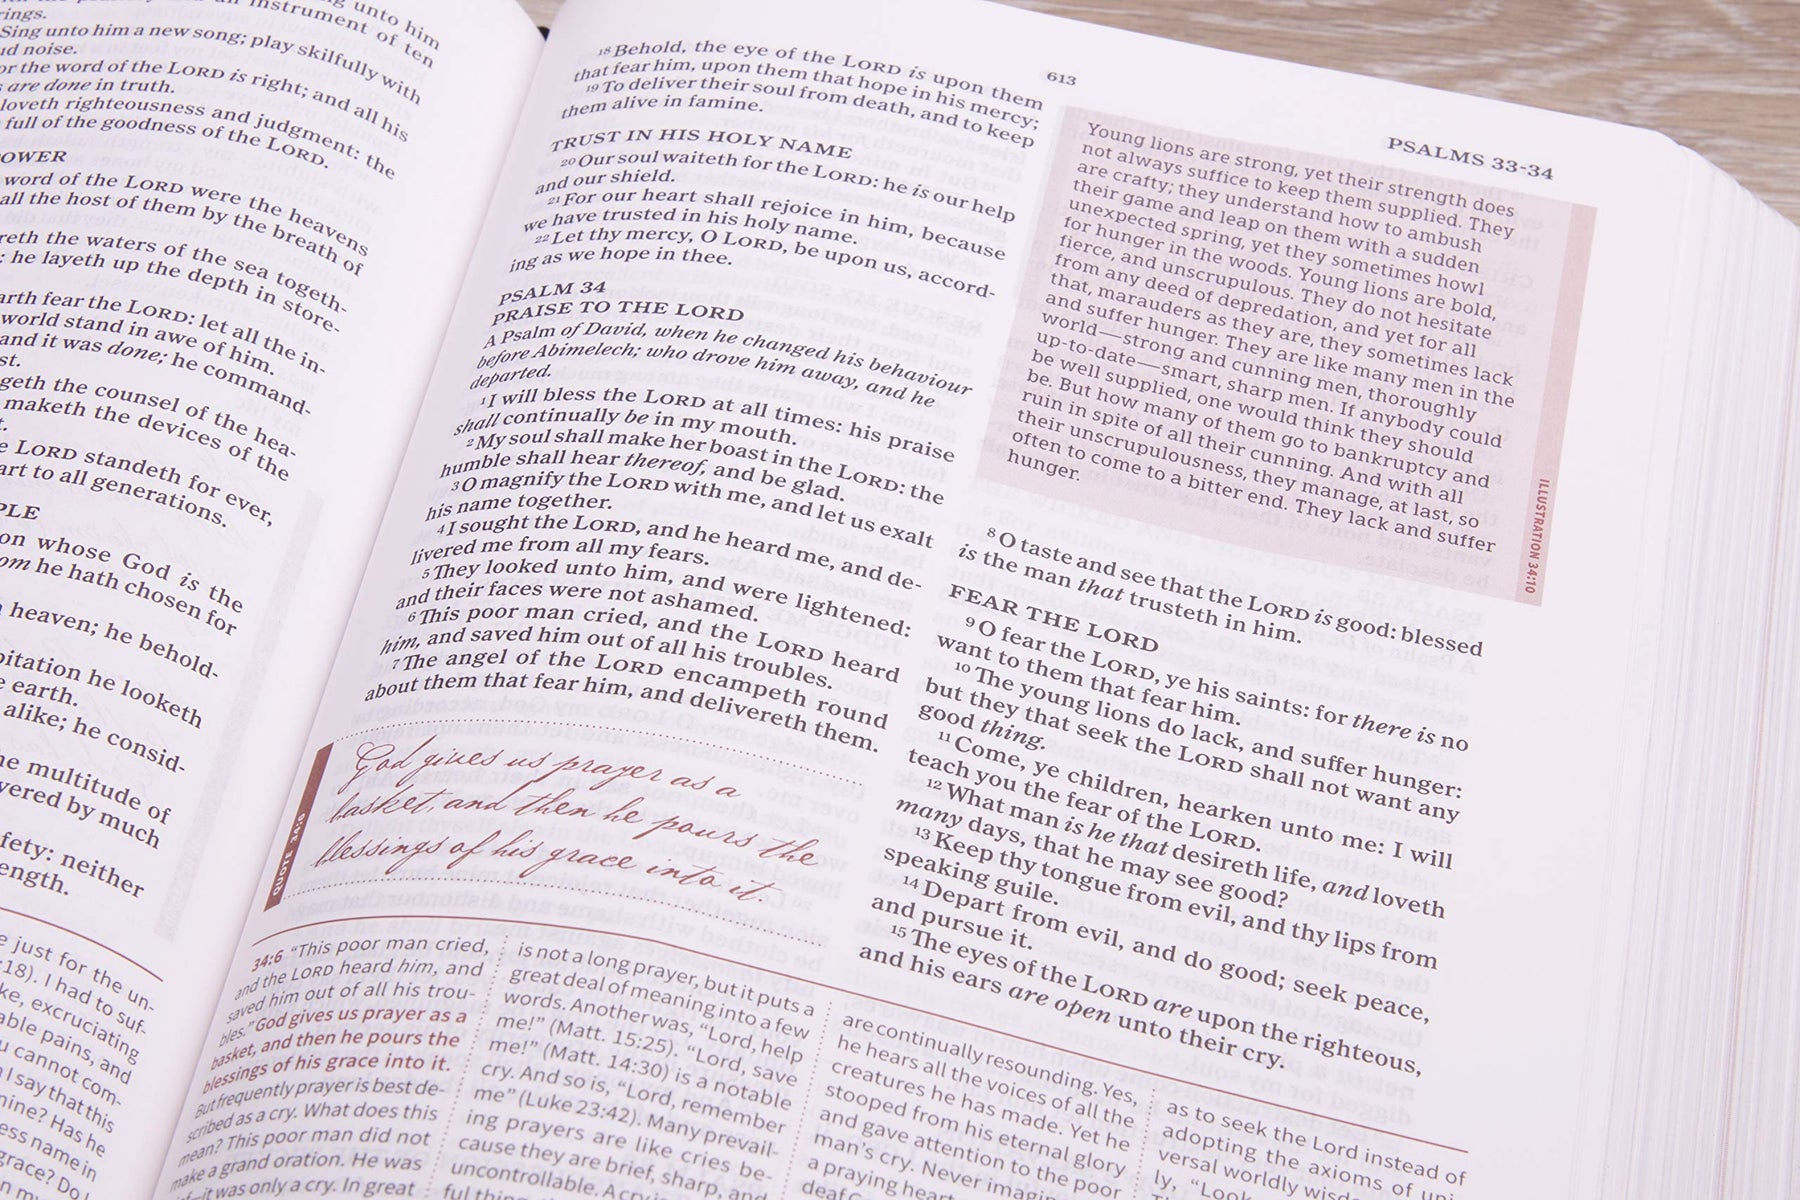 ng unto him
an instrument of ten
rings.
Sing unto him a new song; play skilfully with
noise.
or the word of the LORD is right; and all his
are done in truth.
loveth righteousness and judgment: the
full of the goodness of the LORD.
OWER
word of the LORD were the heavens
all the host of them by the breath of
reth the waters of the sea togeth-
: he layeth up the depth in store-
arth fear the LORD: let all the in-
world stand in awe of him.
and it was done; he command-
st.
geth the counsel of the hea-
maketh the devices of the
t.
e LORD standeth for ever,
art to all generations.
PLE
on whose God is the
om he hath chosen for
heaven; he behold-
bitation he looketh
e earth.
alike; he consid-
he multitude of
vered by much
fety: neither
ength.
e just for the un-
:18). I had to suf-
ke, excruciating
able pains, and
u cannot com-
I say that this
mine? Has he
ess name in
grace? Do I
613
PSALMS 33-34
18 Behold, the eye of the LORD is upon them
that fear him, upon them that hope in his mercy;
19 To deliver their soul from death, and to keep
them alive in famine.
TRUST IN HIS HOLY NAME
20 Our soul waiteth for the LORD: he is our help
and our shield.
21 For our heart shall rejoice in him, because
we have trusted in his holy name.
22 Let thy mercy, O LORD, be upon us, accord-
ing as we hope in thee.
PSALM 34
PRAISE TO THE LORD
A Psalm of David, when he changed his behaviour
before Abimelech; who drove him away, and he
departed.
1 I will bless the LORD at all times: his praise
shall continually be in my mouth.
2 My soul shall make her boast in the LORD: the
humble shall hear thereof, and be glad.
3 O magnify the LORD with me, and let us exalt
his name together.
4 I sought the LORD, and he heard me, and de-
livered me from all my fears.
5 They looked unto him, and were lightened:
and their faces were not ashamed.
6 This poor man cried, and the LORD heard
him, and saved him out of all his troubles.
7 The angel of the LORD encampeth round
about them that fear him, and delivereth them.
QUOTE 34:6
God gives us prayer as a
basket, and then he pours the
blessings of his grace into it.
Young lions are strong, yet their strength does
not always suffice to keep them supplied. They
are crafty; they understand how to ambush
their game and leap on them with a sudden
unexpected spring, yet they sometimes howl
for hunger in the woods. Young lions are bold,
fierce, and unscrupulous. They do not hesitate
from any deed of depredation, and yet for all
that, marauders as they are, they sometimes lack
and suffer hunger. They are like many men in the
world—strong and cunning men, thoroughly
up-to-date—smart, sharp men. If anybody could
be well supplied, one would think they should
be. But how many of them go to bankruptcy and
ruin in spite of all their cunning. And with all
their unscrupulousness, they manage, at last, so
often to come to a bitter end. They lack and suffer
hunger.
ILLUSTRATION 34:10
8 O taste and see that the LORD is good: blessed
is the man that trusteth in him.
FEAR THE LORD
9 O fear the LORD, ye his saints: for there is no
want to them that fear him.
10 The young lions do lack, and suffer hunger:
but they that seek the LORD shall not want any
good thing.
11 Come, ye children, hearken unto me: I will
teach you the fear of the LORD.
12 What man is he that desireth life, and loveth
many days, that he may see good?
13 Keep thy tongue from evil, and thy lips from
speaking guile.
14 Depart from evil, and do good; seek peace,
and pursue it.
15 The eyes of the LORD are upon the righteous,
and his ears are open unto their cry.
34:6 “This poor man cried,
and the LORD heard him, and
saved him out of all his trou-
bles.” God gives us prayer as a
basket, and then he pours the
blessings of his grace into it.
But frequently prayer is best de-
scribed as a cry. What does this
mean? This poor man did not
make a grand oration. He was
it was only a cry. In great
is not a long prayer, but it puts a
great deal of meaning into a few
words. Another was, “Lord, help
me!” (Matt. 15:25). “Lord, save
me!” (Matt. 14:30) is a notable
cry. And so is, “Lord, remember
me” (Luke 23:42). Many prevail-
ing prayers are like cries be-
cause they are brief, sharp, and
uncontrollable. A cry is
ful thing
are continually resounding. Yes,
he hears all the voices of all the
creatures he has made. Yet he
stooped from his eternal glory
and gave attention to the poor
man’s cry. Never imagin
a praying heart
deaf
as to seek the Lord instead of
adopting the axioms of uni-
versal worldly wisd
ly, “Look